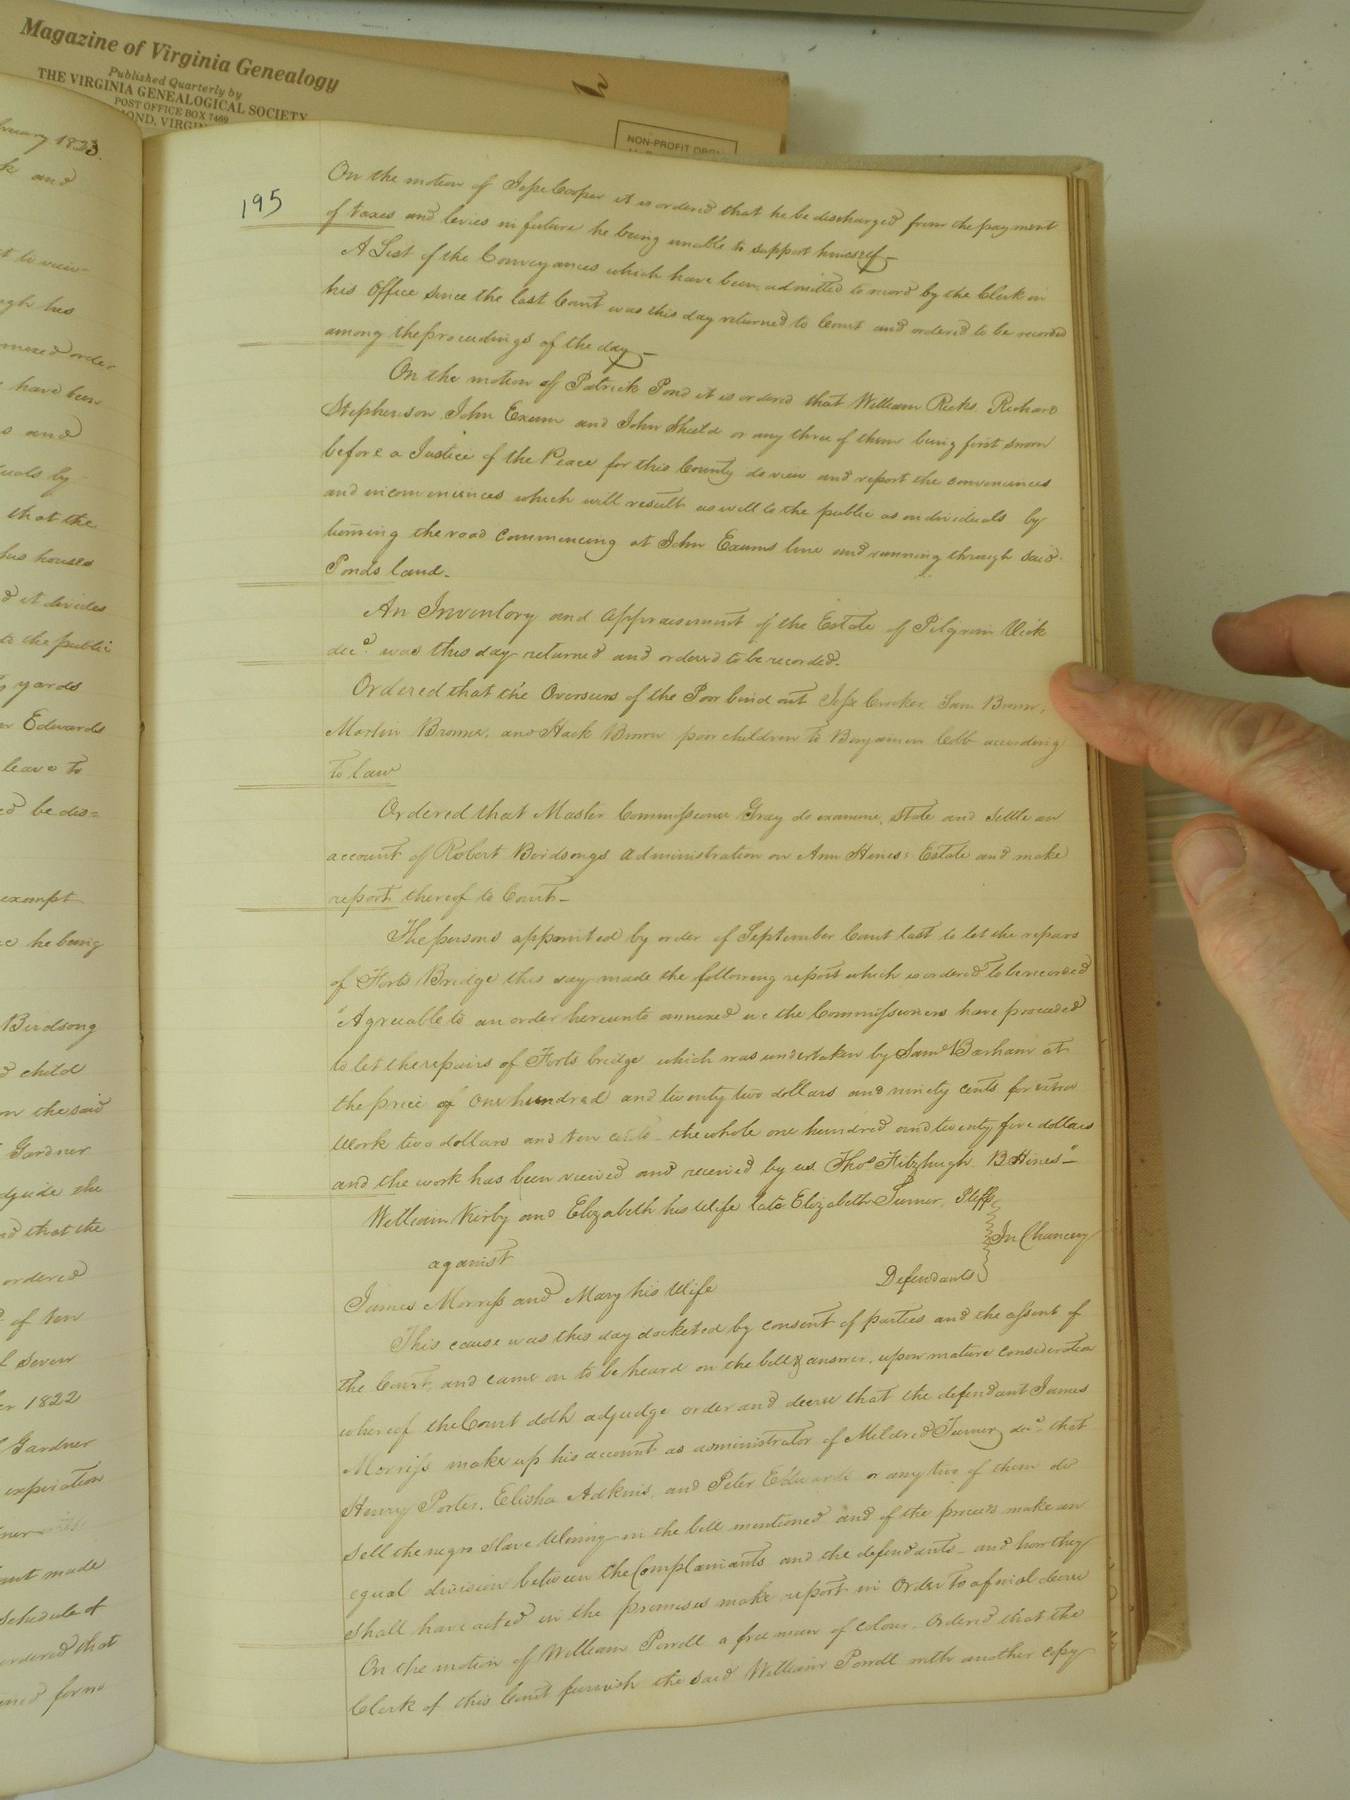 Magazine of Virginia Genealogy
Published Quarterly by
THE VIRGINIA GENEALOGICAL SOCIETY
POST OFFICE BOX 7469
OND, VIRGIN
NON-PROFIT ORG
ruary 1823.
k and
t to view
ugh his
annexed order
have been
s and
uals by
that the
his houses
d it divides
to the public
yards
Edwards
leave to
ed be dis=
exempt
he being
Birdsong
child
the said
Gardner
adjudge the
nd that the
ordered
of ten
seven
er 1822
Gardner
expiration
ent made
schedule of
ordered that
for no
195
On the motion of Jesse Cooper it is ordered that he be discharged from the payment
of taxes and levies in future he being unable to support himself
A List of the Conveyances which have been admitted to record by the Clerk in
his Office since the last Court was this day returned to Court and ordered to be recorded
among the proceedings of the day
On the motion of Patrick Pond it is ordered that William Ricks, Richard
Stephenson John Exum and John Shield or any three of them being first sworn
before a Justice of the Peace for this County do view and report the conveniences
and inconveniences which will result as well to the public as individuals by
turning the road commencing at John Exums line and running through said
Ponds land.
An Inventory and appraisement of the Estate of Pilgrim Vick
decd. was this day returned and ordered to be recorded.
Ordered that the Overseers of the Poor bind out Jesse Crocker Sam Brown,
Martin Browne, and Hack Brown poor children to Benjamin Cobb according
to law
Ordered that Master Commissioner Gray do examine, state and settle an
account of Robert Birdsongs administration on Ann Hines: Estate and make
report thereof to Court
The persons appointed by order of September Court last to let the repairs
of Forts Bridge this day made the following report which is ordered to be recorded
"Agreeable to an order hereunto annexed we the Commissioners have proceeded
to let the repairs of Forts bridge which was undertaken by Saml Barham at
the price of One hundred and twenty two dollars and ninety cents for extra
work two dollars and ten cents the whole one hundred and twenty five dollars
and the work has been viewed and received by us. Thos Fitzhugh. B Hines"
William Kirby and Elizabeth his Wife late Elizabeth Turner, Pltffs
In Chancery
against
James Morriss and Mary his Wife Defendants
This cause was this day docketed by consent of parties and the assent of
the Court, and came on to be heard on the bill & answer, upon mature consideration
whereof the Court doth adjudge order and decree that the defendant James
Morriss make up his account as administrator of Mildred Turner decd. that
Henry Porter, Elisha Adkins, and Peter Edwards or any two of them do
sell the negro slave in the bill mentioned and of the proceeds make an
equal division between the Complainants and the defendants and how they
shall have acted in the premises make report in Order to a final decree
On the motion of William Powell a free man of colour Ordered that the
Clerk of this Court furnish the said William Powell with another copy